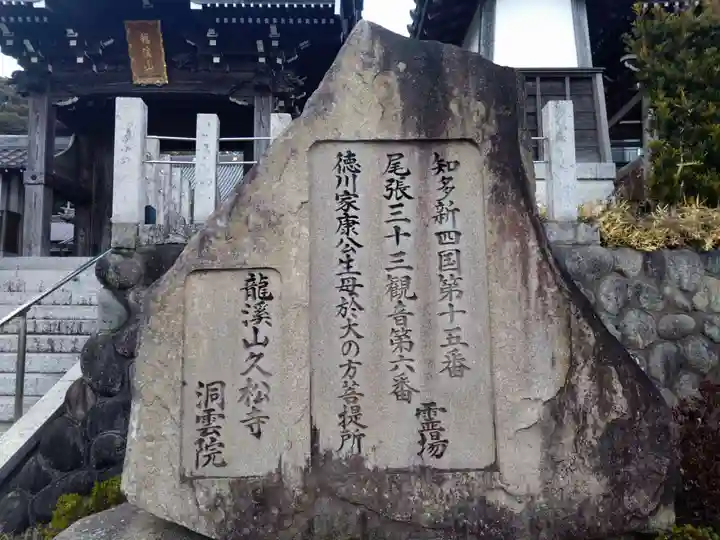 知多新四国第十五番
尾張三十三観音第六番
霊場
徳川家康公生母於大の方菩提所
龍溪山久松寺
洞雲院
龍溪山